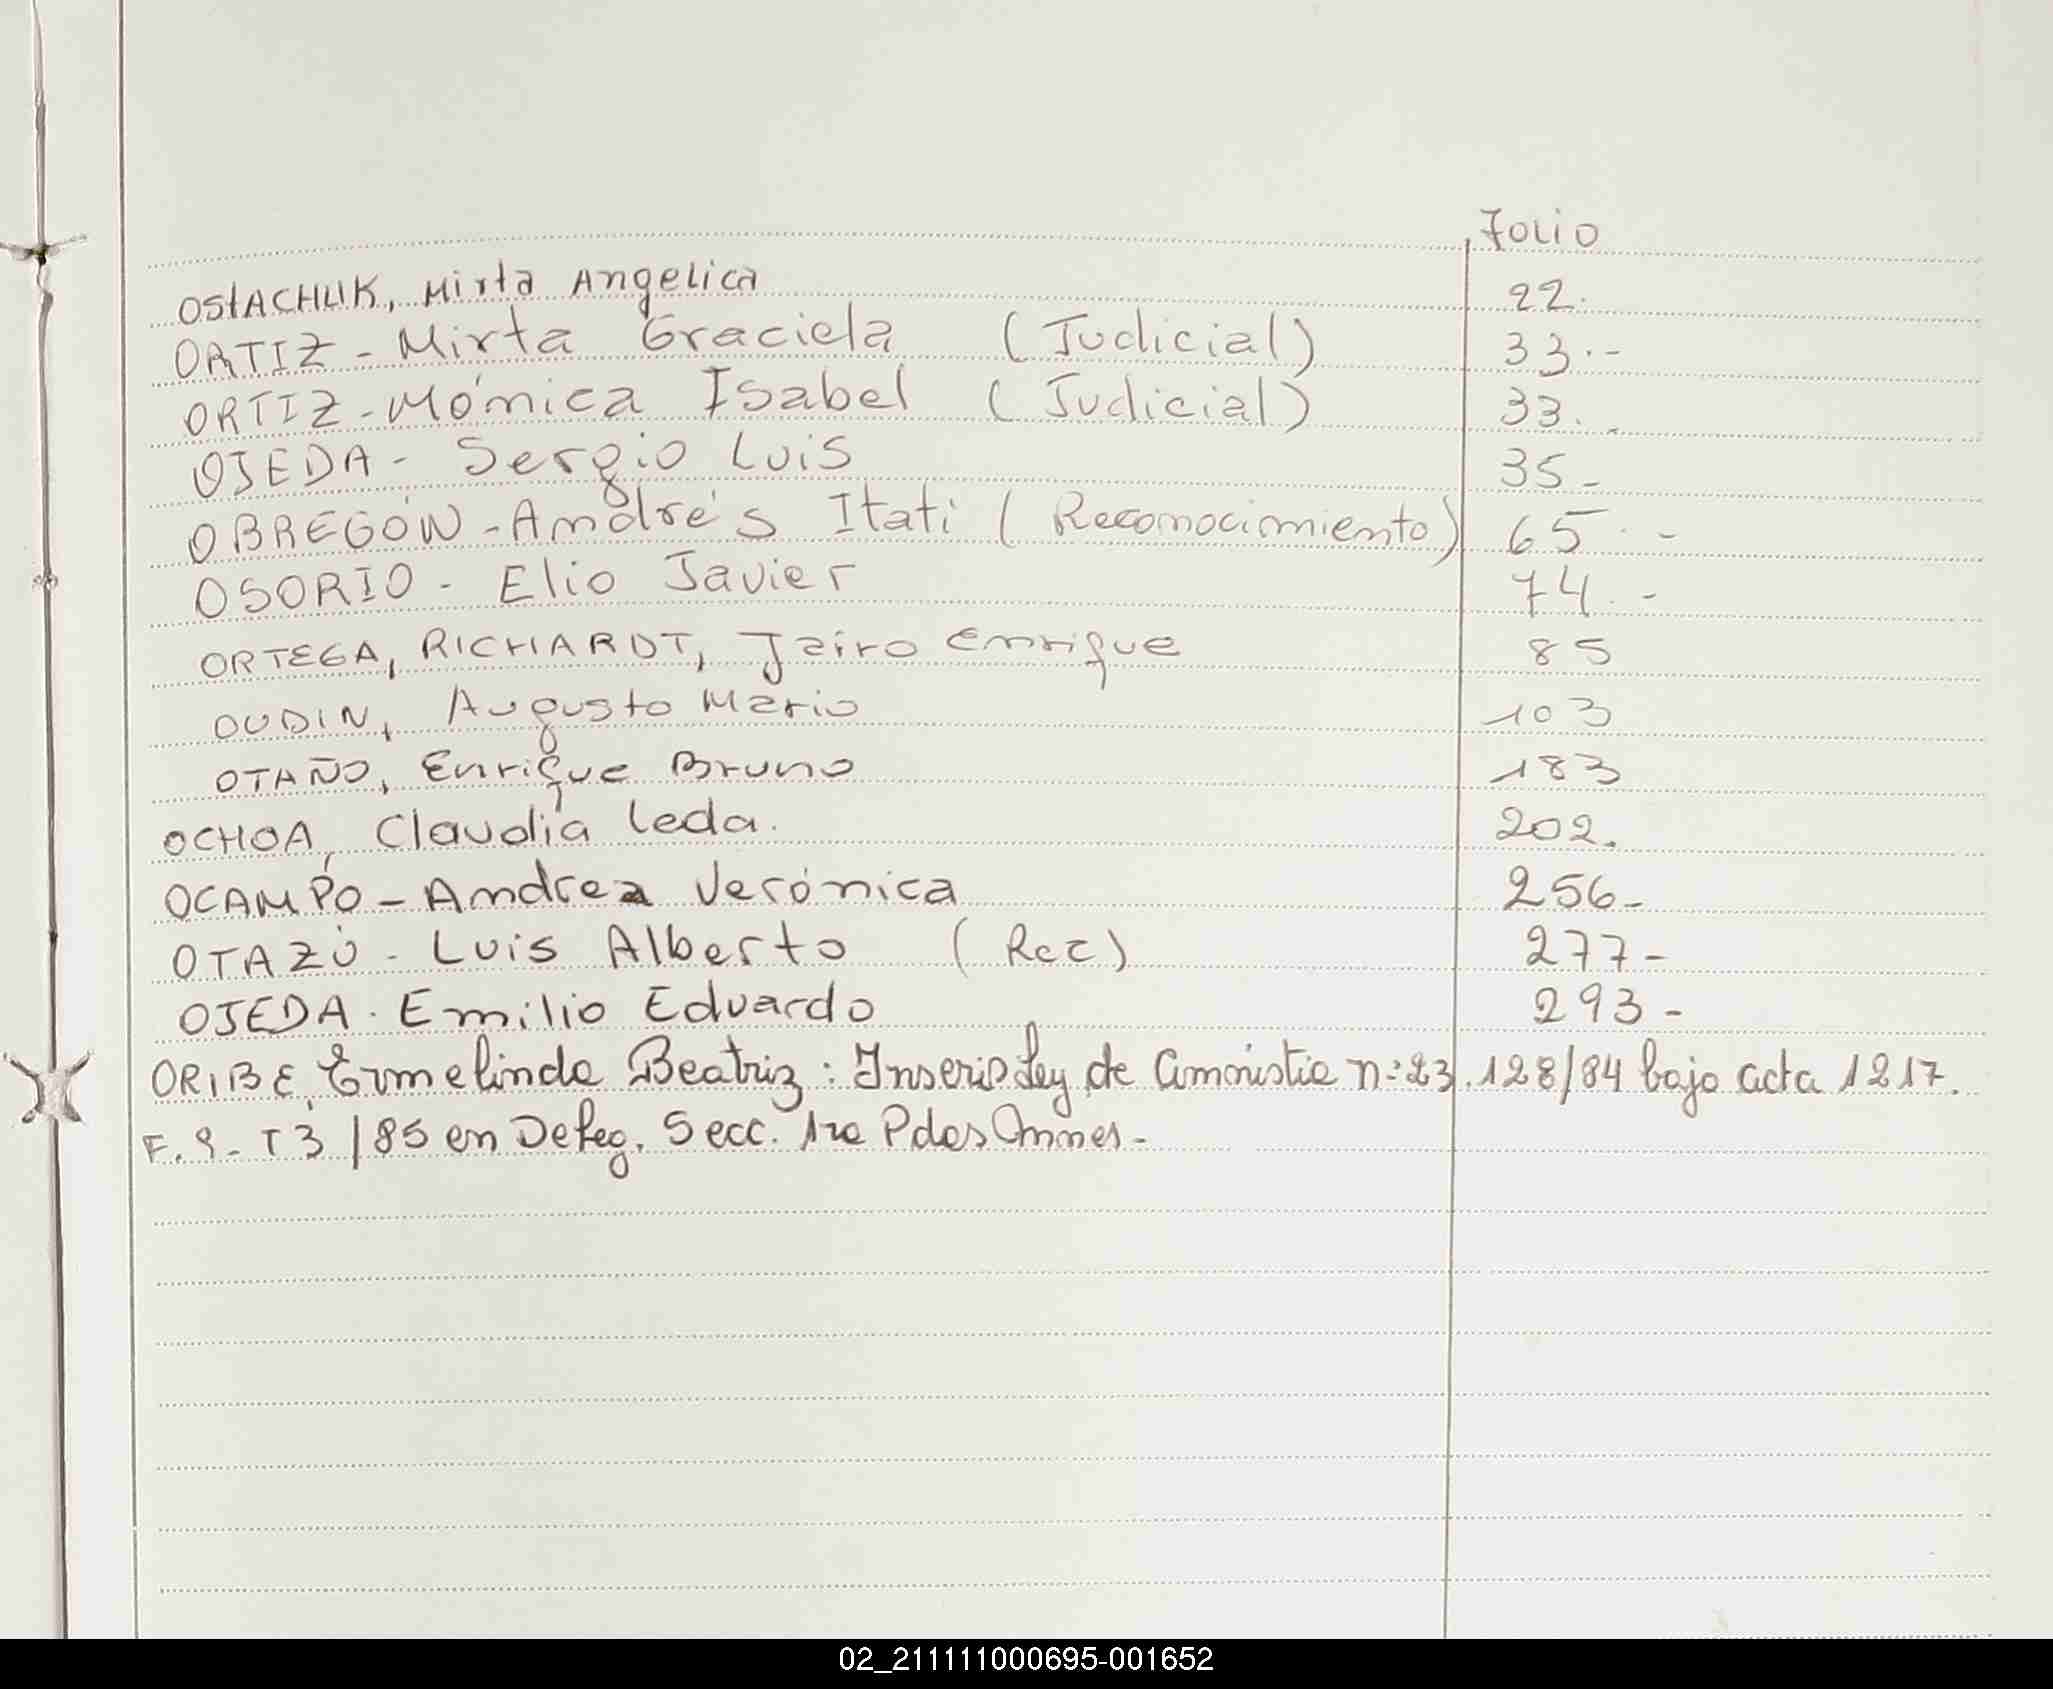 Folio
OStACHUK, Mirta Angelica 22.
ORTIZ - Mirta Graciela (Judicial) 33.-
ORTIZ - Mónica Isabel (Judicial) 33.-
OJEDA - Sergio Luis 35-
OBREGÓN - Andrés Itati (Reconocimiento) 65.-
OSORIO - Elio Javier 74.-
ORTEGA, RICHARDT, Jairo Enrique 85
OUDIN, Augusto Mario 103
OTAÑO, Enrique Bruno 183
OCHOA, Claudia Leda. 202.
OCAMPO - Andrea Verónica 256-
OTAZÚ - Luis Alberto (Rec) 277-
OJEDA. Emilio Eduardo 293-
ORIBE, Ermelinda Beatriz: Inscrip Ley de Amnistia n: 23.128/84 bajo acta 1217.
F. 9- T3/85 en Deleg. Secc. 1ra Pdos